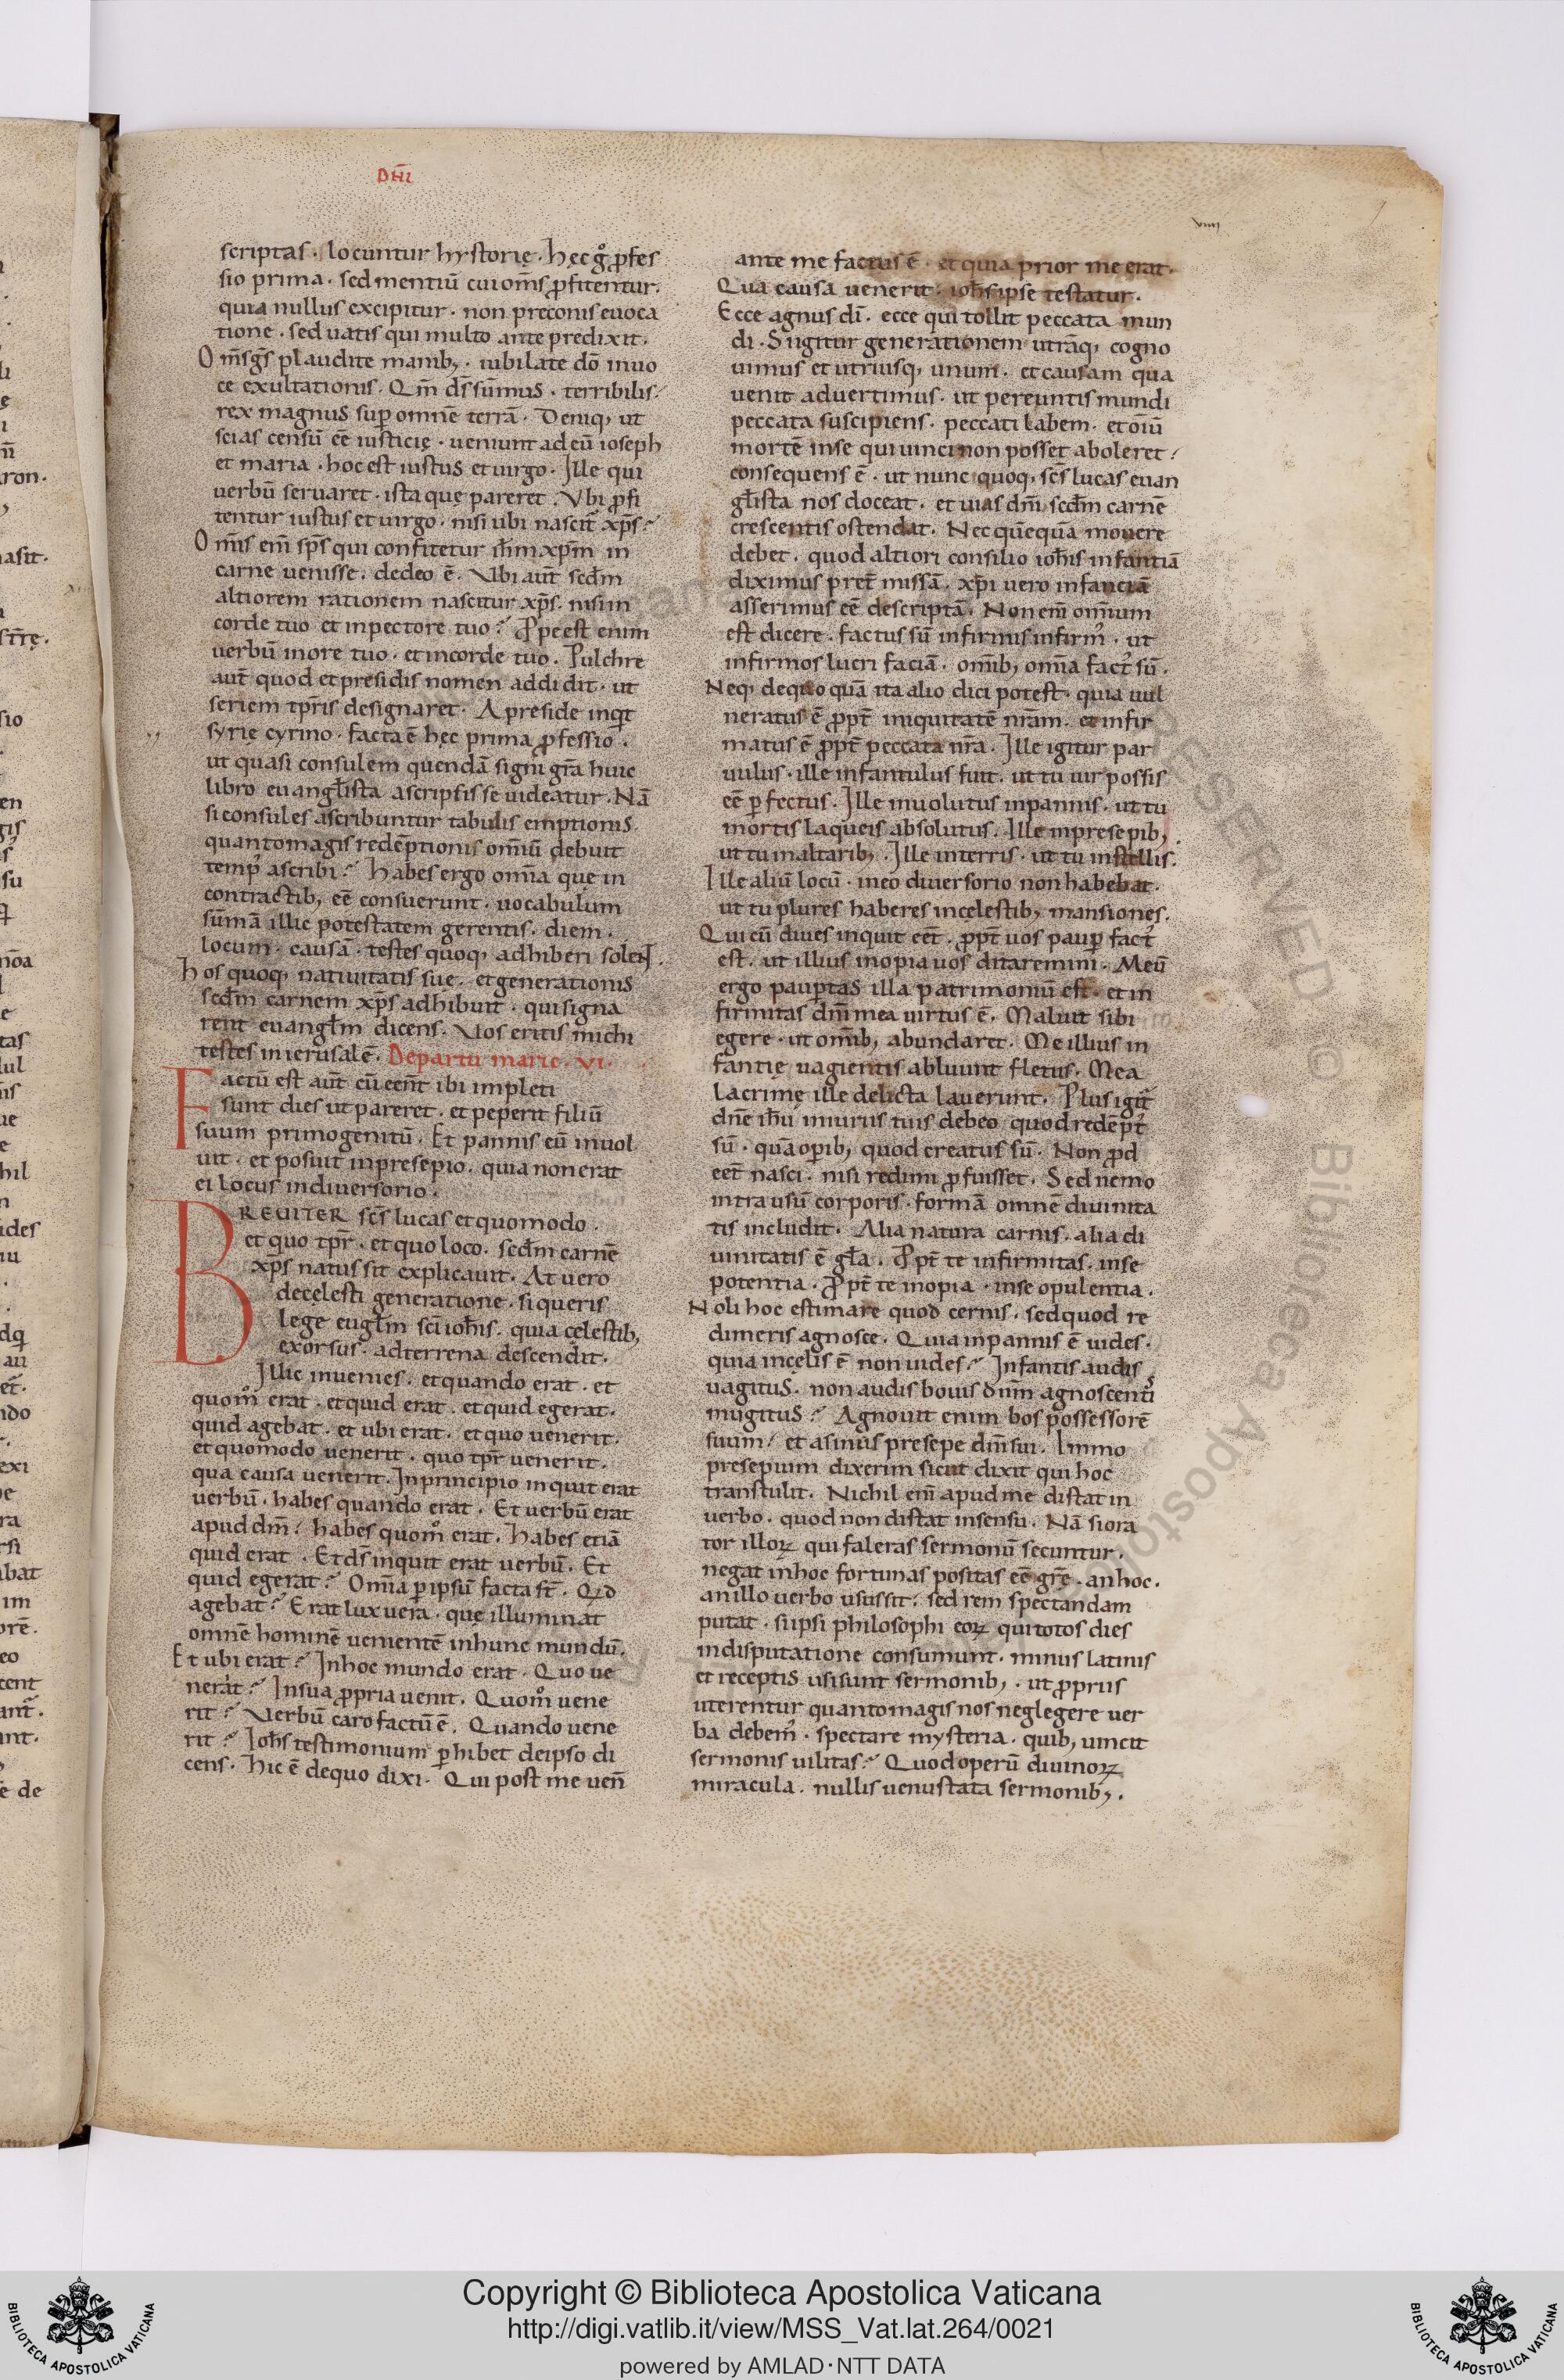 DN̄I
viiii
scriptas · locuntur hystorię · hęc g̊ ꝓfes
sio prima · sed mentiū cui om̄s ꝓfitentur.
quia nullus excipitur · non preconis euoca
tione · sed uatis qui multo ante predixit.
Om̄s gs̄ plaudite manib; · iubilate dō in uo
ce exultationis. Qm̄ ds̄ sūmus · terribilis.
rex magnus suꝑ omnē terrā. Deniq; ut
scias censū eē iusticię · ueniunt ad eū ioseph
et maria · hoc est iustus et uirgo. Ille qui
uerbū seruaret · ista quę pareret. Vbi ꝓfi
tentur iustus et uirgo. nisi ubi nascit̄ xp̄s?
Om̄is em̄ sp̄s qui confitetur ih̄m xp̄m in
carne uenisse. de deo ē. Vbi aut̄ scd̄m
altiorem rationem nascitur xp̄s. nisi in
corde tuo et in pectore tuo? Ꝓpe est enim
uerbū in ore tuo · et in corde tuo. Pulchre
aut̄ quod et presidis nomen addidit · ut
seriem tp̄ris designaret. A preside inqͥt
syrię cyrino · facta ē hęc prima ꝓfessio.
ut quasi consulem quendā signi gr̄a huic
libro euangl̄ista ascripsisse uideatur. Nā
si consules ascribuntur tabulis emptionis.
quanto magis redēptionis omīū debuit
temp᾽ ascribi? Habes ergo omn̄a quę in
contractib; eē consuerunt · uocabulum
sūmā illic potestatem gerentis · diem ·
locum · causā · testes quoq; adhiberi solen̄t.
hos quoq; natiuitatis suę · et generationis
scd̄m carnem xp̄s adhibuit · qui signa
rent euangl̄m dicens. Vos eritis michi
testes in ierusalē. De partu marię. VI.
Factū est aut̄ cū eēnt ibi impleti
sunt dies ut pareret. et peperit filiū
suum primogenitū. Et pannis eū inuol
uit. et posuit in presepio. quia non erat
ei locus in diuersorio.
BREUITER sc̄s lucas et quomodo ·
et quo tp̄r · et quo loco. scd̄m carnē
xp̄s natus sit explicauit. At uero
de cęlesti generatione · si queris
lege eugl̄m sc̄i ioh̄is. quia cęlestib;
exorsus · ad terrena descendit.
Illic inuenies. et quando erat · et
quom̊ erat · et quid erat · et quid egerat.
quid agebat · et ubi erat · et quo uenerit.
et quomodo uenerit · quo tp̄r uenerit.
qua causa uenerit. In principio inquit erat
uerbū. habes quando erat. Et uerbū erat
apud dm̄. habes quom̊ erat. Habes etiā
quid erat. Et ds̄ inquit erat uerbū. Et
quid egerat? Omn̄a ꝑ ipsū facta sr̄. Qͥd
agebat? Erat lux uera. quę illuminat
omnē hominē uenientē in hunc mundū.
Et ubi erat? In hoc mundo erat. Quo ue
nerat? In sua ꝓpria uenit. Quom̊ uene
rit? Verbū caro factū ē. Quando uene
rit? Ioh̄s testimonium ꝑhibet de ipso di
cens. Hic ē de quo dixi. Qui post me uen̄
ante me factus ē. et quia prior me erat.
Qua causa uenerit. ioh̄s ipse testatur.
Ecce agnus dī. ecce qui tollit peccata mun
di. Si igitur generationem utrāq; cogno
uimus et utriusq; unum. et causam qua
uenit aduertimus. ut pereuntis mundi
peccata suscipiens. peccati labem. et oīū
mortē in se qui uinci non posset aboleret.
consequens ē. ut nunc quoq; sc̄s lucas euan
gl̄ista nos doceat. et uias dn̄i scd̄m carnē
crescentis ostendat. Nec quēquā mouere
debet. quod altiori consilio ioh̄is infantiā
diximus pret̄missā. xp̄i uero infanciā
asserimus eē descriptā. Non em̄ omn̄ium
est dicere. factus sū infirmis infirm᾽. ut
infirmos lucri faciā. omīb; omn̄a fact᾽ sū.
Neq; de quo quā ita alio dici potest. quia uul
neratus ē ꝓpt̄ iniquitatē nr̄am. et infir
matus ē ꝓpt̄ peccata nr̄a. Ille igitur par
uulus. ille infantulus fuit. ut tu uir possis
eē ꝑfectus. Ille inuolutus in pannis. ut tu
mortis laqueis absolutus. Ille in presepib;
ut tu in altarib;. Ille in terris. ut tu in stellis.
Ille aliū locū. in eo diuersorio non habebat.
ut tu plures haberes in cęlestib; mansiones.
Qui cū diues inquit eēt. ꝓpt̄ uos pauꝑ fact᾽
est. ut illius inopia uos ditaremini. Meū
ergo pauꝑtas illa patrimoniū est. et in
firmitas dn̄i mea uirtus ē. Maluit sibi
egere. ut omīb; abundaret. Me illius in
fantię uagientis abluunt fletus. Mea
lacrimę ille delicta lauerunt. Plus igit̄
dn̄e ih̄u iniuriis tuis debeo quod redēpt᾽
sū. quā opib; quod creatus sū. Non ꝓd
eēt nasci. nisi redimi ꝓfuisset. Sed nemo
intra usū corporis. formā omnē diuinita
tis includit. Alia natura carnis. alia di
uinitatis ē gl̄a. Ꝓpt̄ te infirmitas. in se
potentia. Ꝓpt̄ te inopia. in se opulentia.
Noli hoc estimare quod cernis. sed quod re
dimeris agnosce. Quia in pannis ē uides.
quia in cęlis ē non uides? Infantis audis
uagitus. non audis bouis dn̄m agnoscenti
mugitus? Agnouit enim bos possessorē
suum. et asinus presepe dn̄i sui. Immo
presepium dixerim sicut dixit qui hoc
transtulit. Nichil em̄ apud me distat in
uerbo. quod non distat in sensu. Nā si ora
tor illoꝝ qui faleras sermonū secuntur.
negat in hoc fortunas positas eē gr̄ę. an hoc.
an illo uerbo usus sit. sed rem spectandam
putat. si ipsi philosophi eoꝝ qui totos dies
in disputatione consumunt. minus latinis
et receptis usi sunt sermonib;. ut ꝓpriis
uterentur quanto magis nos neglegere uer
ba debem᾽. spectare mysteria. quib; uincit
sermonis uilitas? Quod operū diuinoꝝ
miracula. nullis uenustata sermonib;.
Copyright © Biblioteca Apostolica Vaticana
http://digi.vatlib.it/view/MSS_Vat.lat.264/0021
powered by AMLAD·NTT DATA
BIBLIOTECA APOSTOLICA VATICANA
BIBLIOTECA APOSTOLICA VATICANA